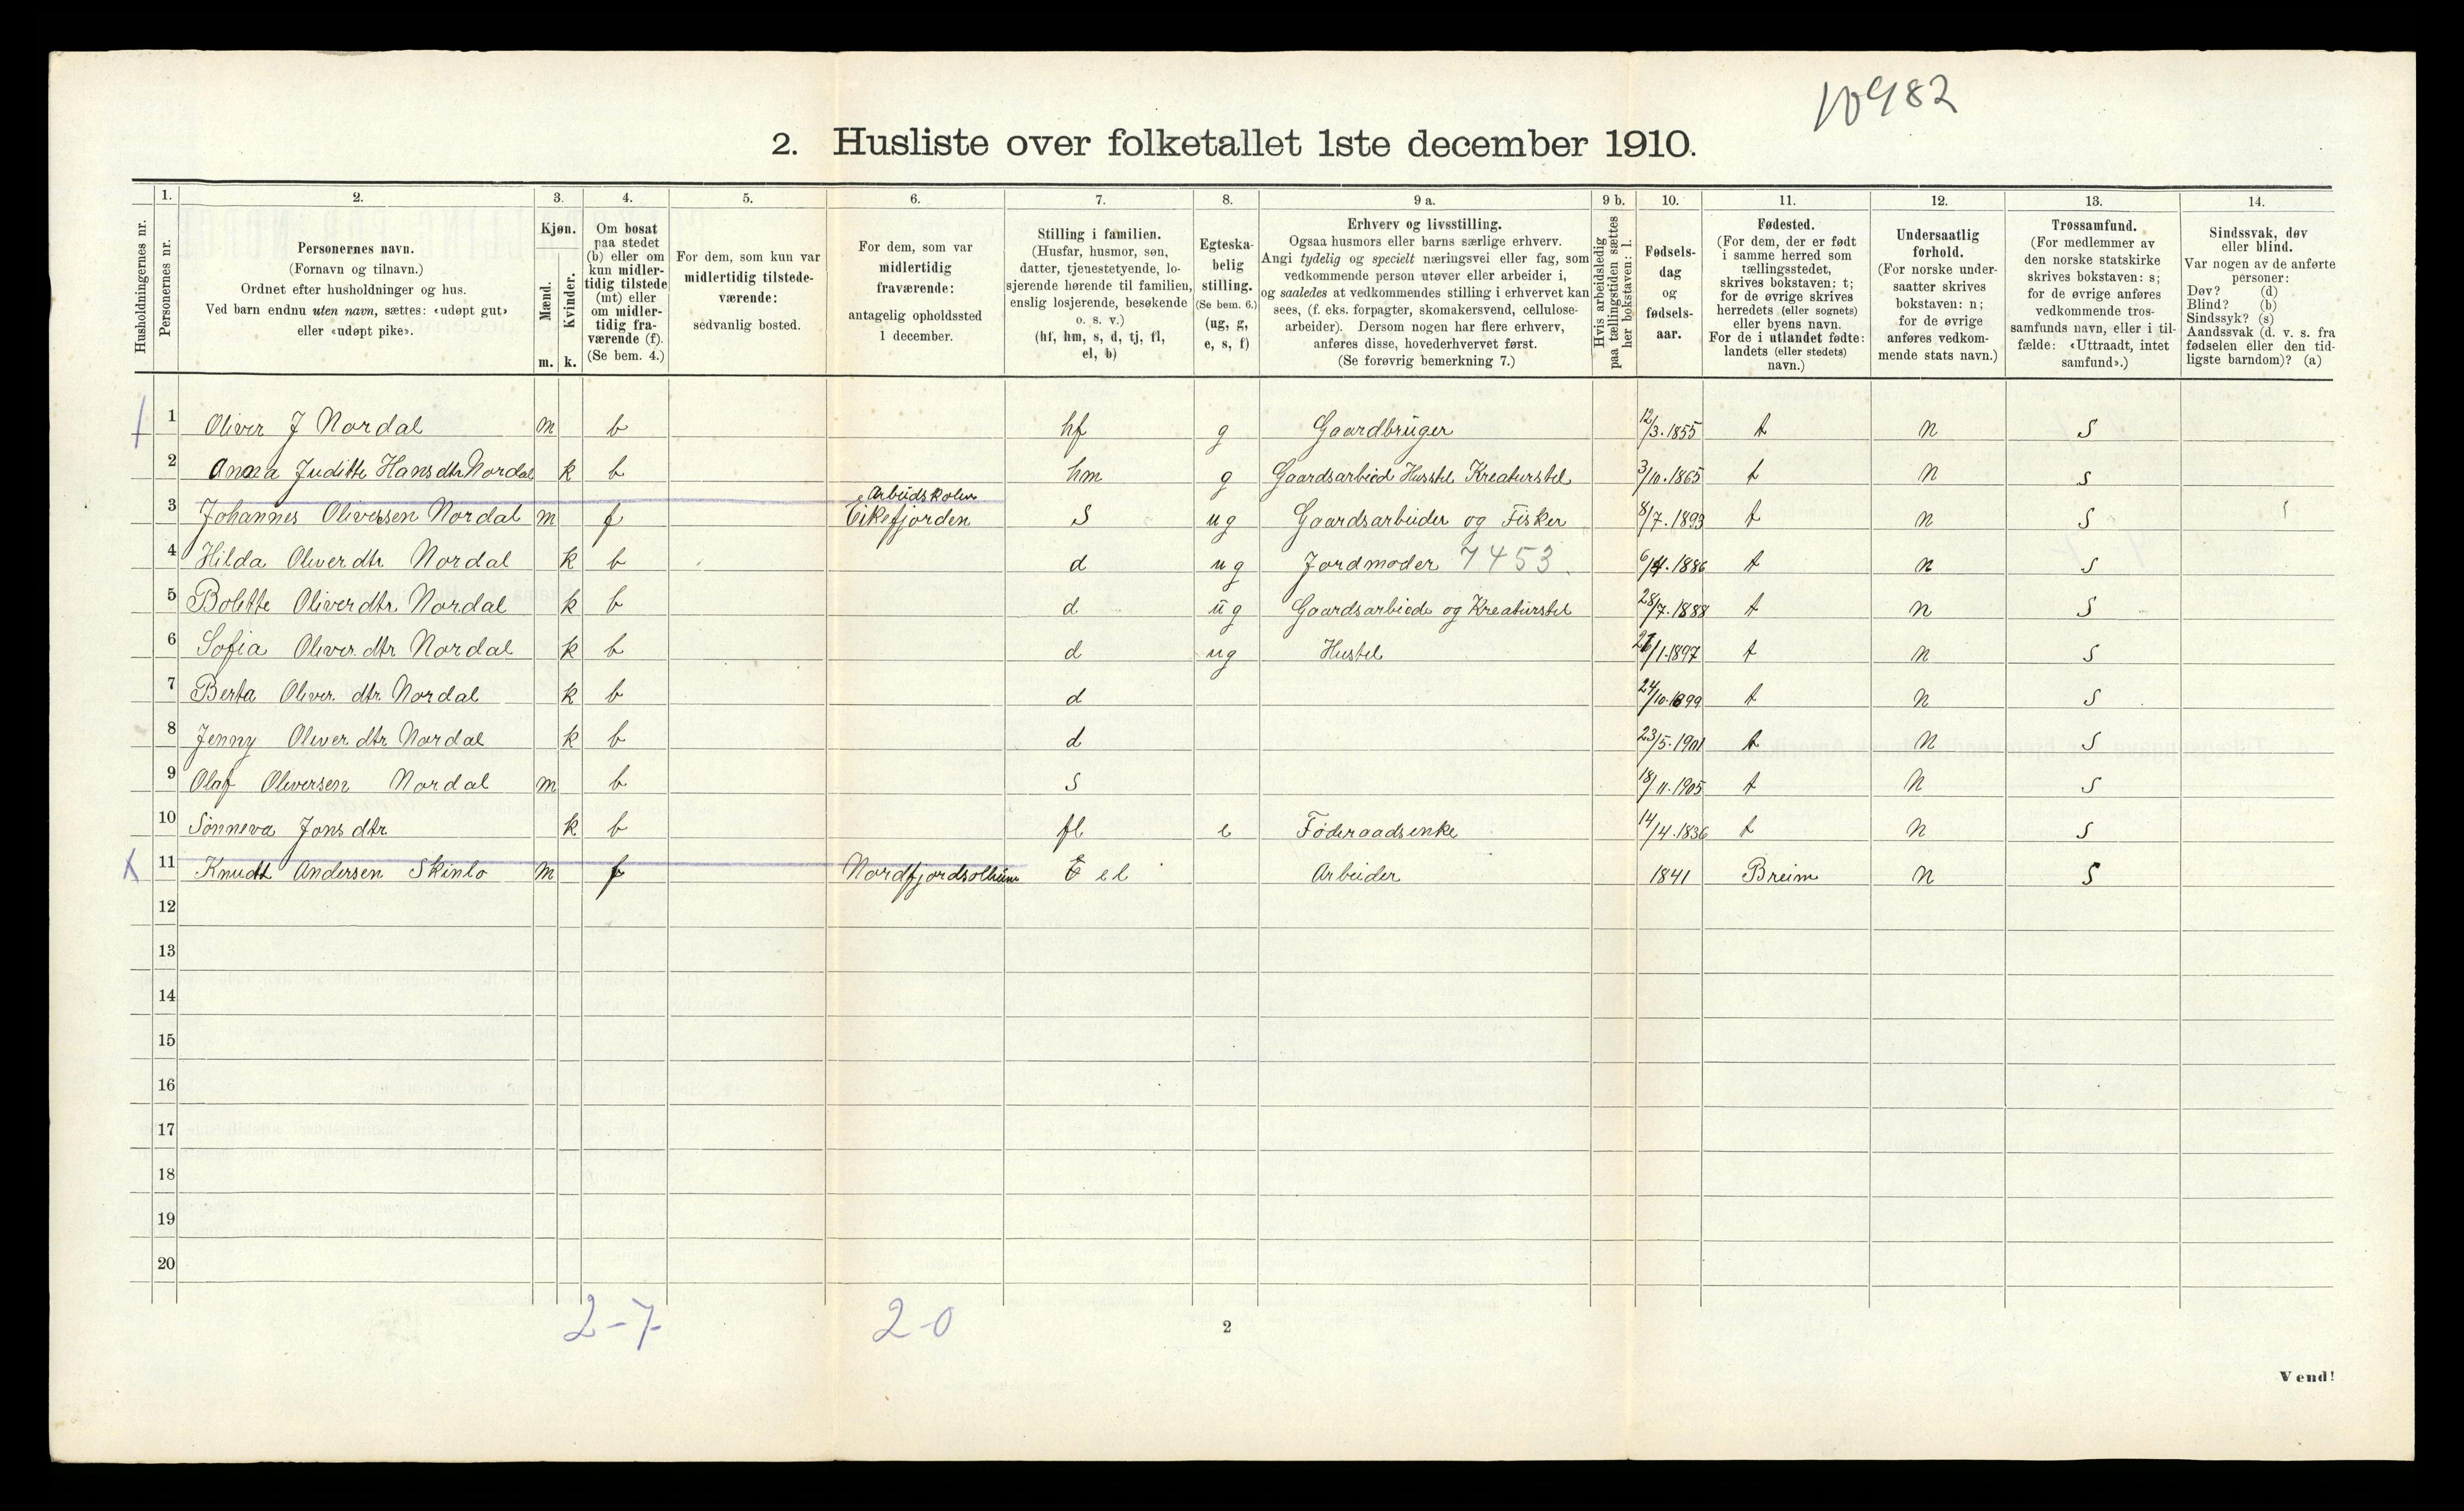 10982
2. Husliste over folketallet 1ste december 1910.
Husholdningernes nr.
1. Personernes nr.
2. Personernes navn. (Fornavn og tilnavn.) Ordnet efter husholdninger og hus. Ved barn endnu uten navn, sættes: «udøpt gut» eller «udøpt pike».
3. Kjøn. Mænd. m. Kvinder. k.
4. Om bosat paa stedet (b) eller om kun midlertidig tilstede (mt) eller om midlertidig fraværende (f). (Se bem. 4.)
5. For dem, som kun var midlertidig tilstedeværende: sedvanlig bosted.
6. For dem, som var midlertidig fraværende: antagelig opholdssted 1 december.
7. Stilling i familien. (Husfar, husmor, søn, datter, tjenestetyende, losjerende hørende til familien, enslig losjerende, besøkende o. s. v.) (hf, hm, s, d, tj, fl, el, b)
8. Egteskabelig stilling. (Se bem. 6.) (ug, g, e, s, f)
9 a. Erhverv og livsstilling. Ogsaa husmors eller barns særlige erhverv. Angi tydelig og specielt næringsvei eller fag, som vedkommende person utøver eller arbeider i, og saaledes at vedkommendes stilling i erhvervet kan sees, (f. eks. forpagter, skomakersvend, cellulosearbeider). Dersom nogen har flere erhverv, anføres disse, hovederhvervet først. (Se forøvrig bemerkning 7.)
9 b. Hvis arbeidsledig paa tællingstiden sættes her bokstaven: l.
10. Fødselsdag og fødselsaar.
11. Fødested. (For dem, der er født i samme herred som tællingsstedet, skrives bokstaven: t; for de øvrige skrives herredets (eller sognets) eller byens navn. For de i utlandet fødte: landets (eller stedets) navn.)
12. Undersaatlig forhold. (For norske undersaatter skrives bokstaven: n; for de øvrige anføres vedkommende stats navn.)
13. Trossamfund. (For medlemmer av den norske statskirke skrives bokstaven: s; for de øvrige anføres vedkommende trossamfunds navn, eller i tilfælde: «Uttraadt, intet samfund».)
14. Sindssvak, døv eller blind. Var nogen av de anførte personer: Døv? (d) Blind? (b) Sindssyk? (s) Aandssvak (d. v. s. fra fødselen eller den tidligste barndom)? (a)
1 Oliver J Nordal m b hf g Gaardbrüger 12/3.1855 t n S
2 Anna Juditte Hansdtr Nordal k b hm g Gaardsarbied Husstel Kreaturstel 3/10.1865 t n s
3 Johannes Oliversen Nordal m f Arbeidskolen Eikefjorden S ug Gaardsarbeider og Fisker 8/7.1893 t n S
4 Hilda Oliverdtr Nordal k b d ug Jordmoder 7453 1886 t n S
5 Bolette Oliverdtr Nordal k b d ug Gaardsarbiede og Kreaturstel 28/7.1888 t n S
6 Sofia Oliver dtr Nordal k b d ug Hustel /1.1897 t n S
7 Berta Oliver dtr Nordal k b d 24/10.1899 t n S
8 Jenny Oliver dtr Nordal k b d 23/5.1901 t n S
9 Olaf Oliversen Nordal m b S 18/11.1905 t n S
10 Sønneva Jons dtr k b fl e Føderaadsenke 14/4.1836 t n S
11 Knudt Andersen Skinlo m f Nordfjordsolheim el Arbeider 1841 Breim n S
12
13
14
15
16
17
18
19
20
2-7 2-0
2
Vend!